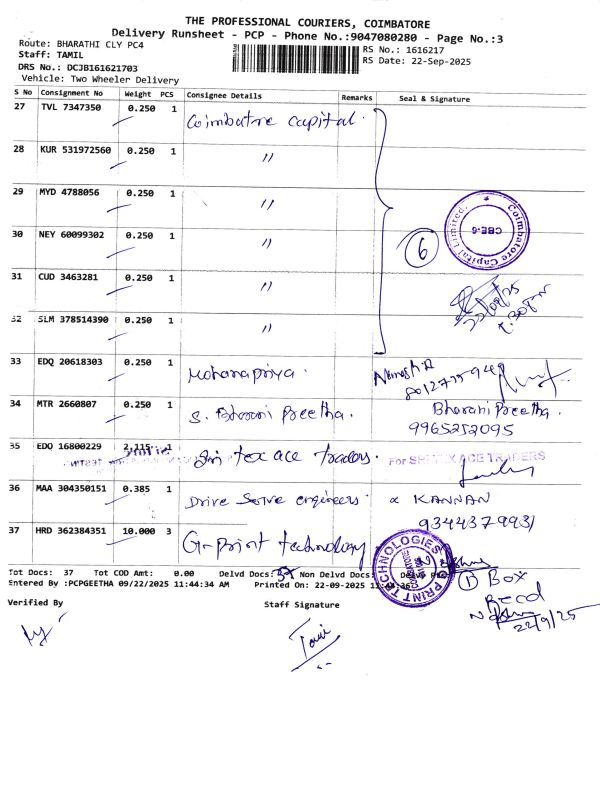 THE PROFESSIONAL COURIERS, COIMBATORE
Delivery Runsheet - PCP - Phone No.:9047080280 - Page No.:3
Route: BHARATHI CLY PC4
Staff: TAMIL
DRS No.: DCJB161621703
Vehicle: Two Wheeler Delivery
RS No.: 1616217
RS Date: 22-Sep-2025
S No Consignment No Weight PCS Consignee Details Remarks Seal & Signature
27 TVL 7347350 0.250 1 Coimbatore capital.
28 KUR 531972560 0.250 1 "
29 MYD 4788056 0.250 1 "
30 NEY 60099302 0.250 1 "
31 CUD 3463281 0.250 1 "
32 SLM 378514390 0.250 1 "
6
Coimbatore Capital Limited.
CBE-6
22/09/25
33 EDQ 20618303 0.250 1 Mohanapriya.
34 MTR 2660807 0.250 1 S. Bharani Preetha. Bharani Preetha.
9965252095
35 EDQ 16800229 2.115 1 tex ace traders. For TRADERS
36 MAA 304350151 0.385 1 Drive Serve engineers. KANNAN
37 HRD 362384351 10.000 3 G-print technology
G-PRINT TECHNOLOGIES
Tot Docs: 37 Tot COD Amt: 0.00 Delvd Docs: 37 Non Delvd Docs:
Entered By :PCPGEETHA 09/22/2025 11:44:34 AM Printed On: 22-09-2025
1 Box
Recd
22/9/25
Verified By
Staff Signature